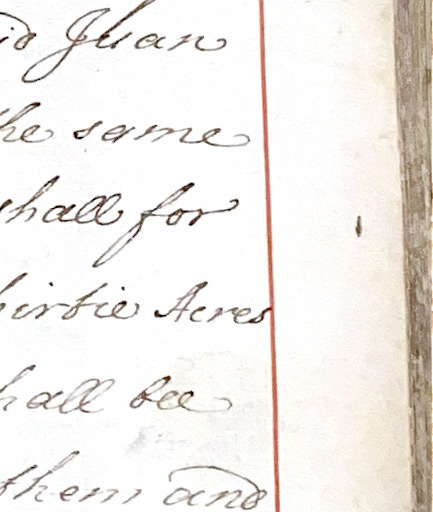 id Juan
he same
shall for
hirtie Acres
hall bee
them and